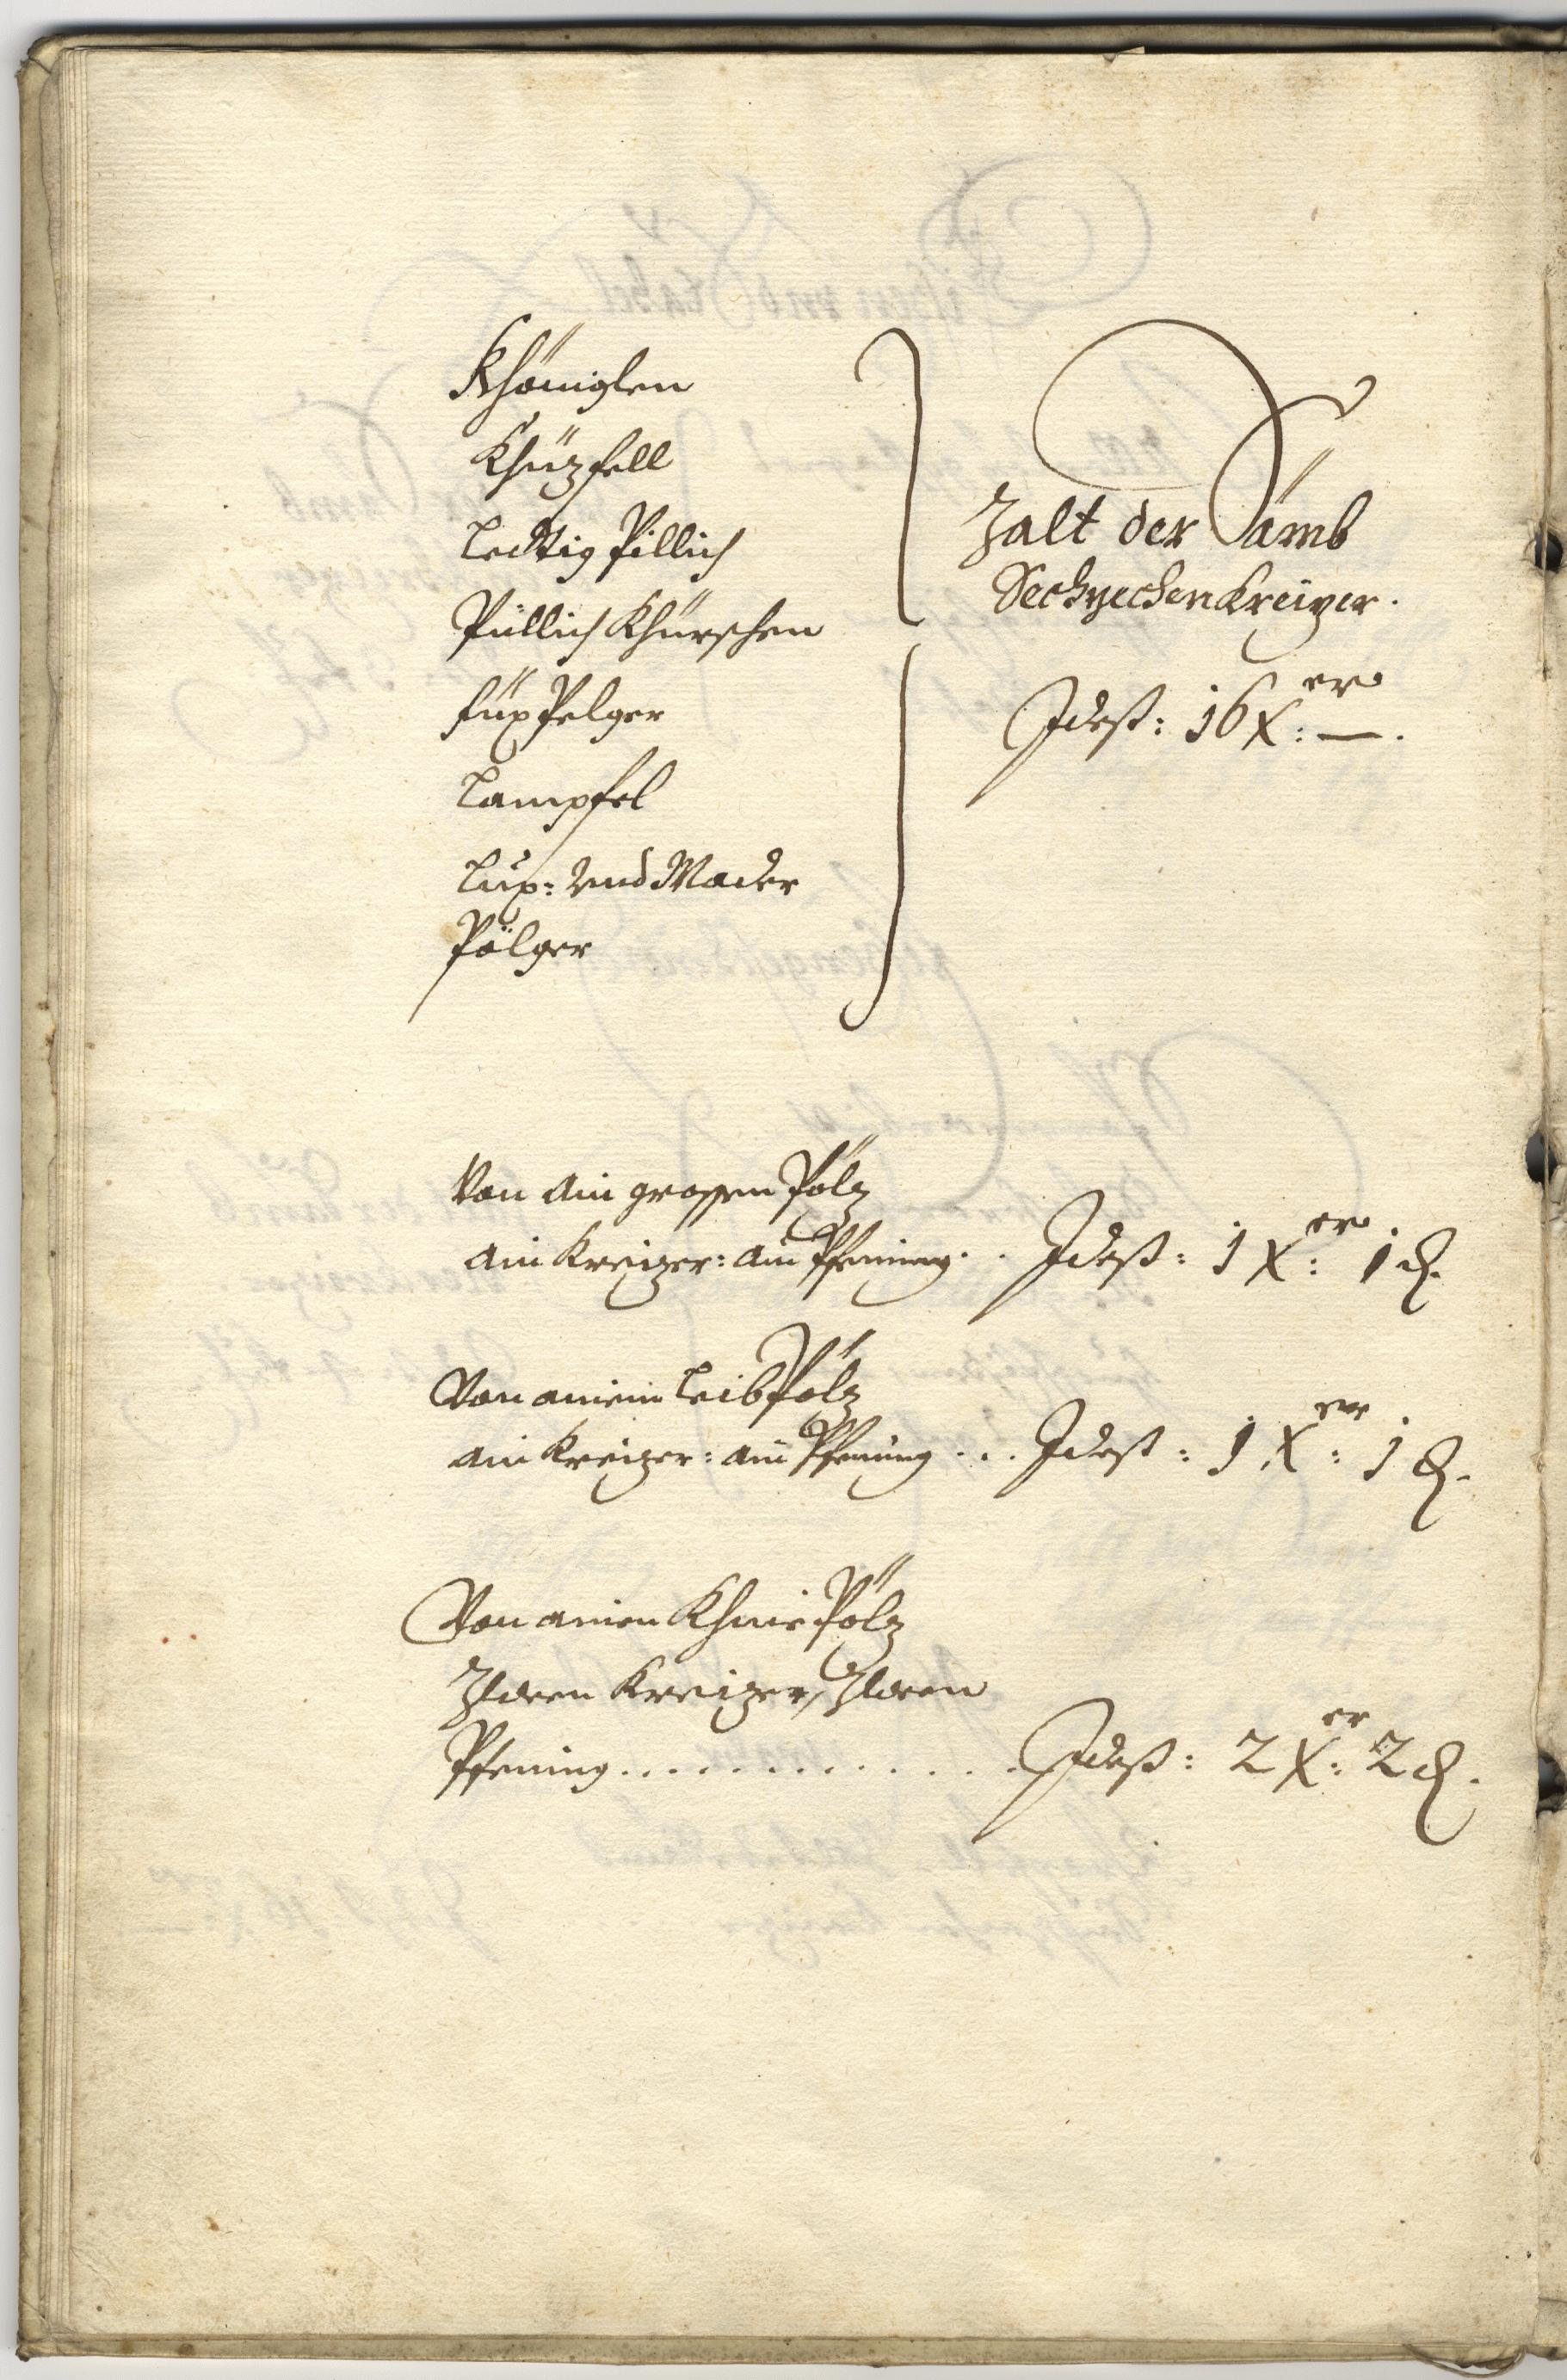 Khöniglen
Khüzfell
Ledtig Pillich
Püllich Khürschen
füx Pelger
Lampfel
Lux: Vnd Mader
Pölger
Zalt der Sämb
Sechzechen Kreizer.
Idest: 16 X:er —.
Von Ain grossen Pölz
ain Kreizer: ain Pfening. . Idest: 1 Xer: 1 ₰.
Von ainem Leib Pölz
ain Kreizer: ain Pfening . . . Idest: 1 Xer: 1 ₰.
Von ainen Khnie Pölz
Zween Kreizer, Zween
Pfening . . . . . . . . . . . . Idest: 2 Xer: 2 ₰.